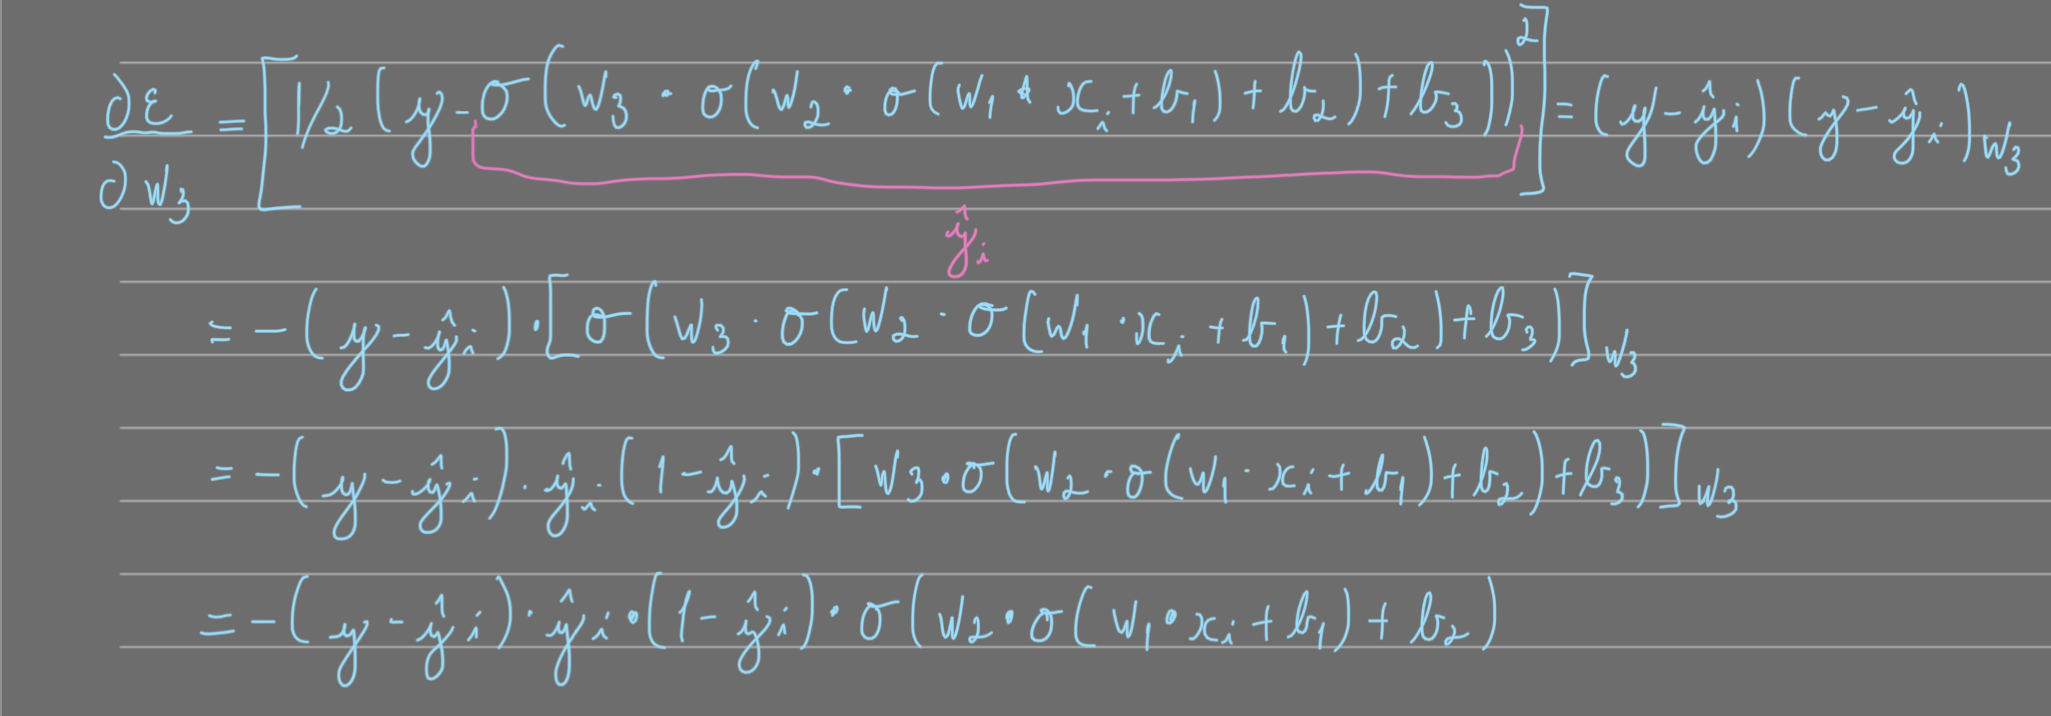 ∂ε/∂w₃ = [1/2 (y - σ(w₃ · σ(w₂ · σ(w₁ · xᵢ + b₁) + b₂) + b₃))²] = (y - ŷᵢ)(y - ŷᵢ)w₃
ŷᵢ
= -(y - ŷᵢ) · [σ(w₃ · σ(w₂ · σ(w₁ · xᵢ + b₁) + b₂) + b₃)]w₃
= -(y - ŷᵢ) · ŷᵢ(1 - ŷᵢ) · [w₃ · σ(w₂ · σ(w₁ · xᵢ + b₁) + b₂) + b₃)]w₃
= -(y - ŷᵢ) · ŷᵢ · (1 - ŷᵢ) · σ(w₂ · σ(w₁ · xᵢ + b₁) + b₂)